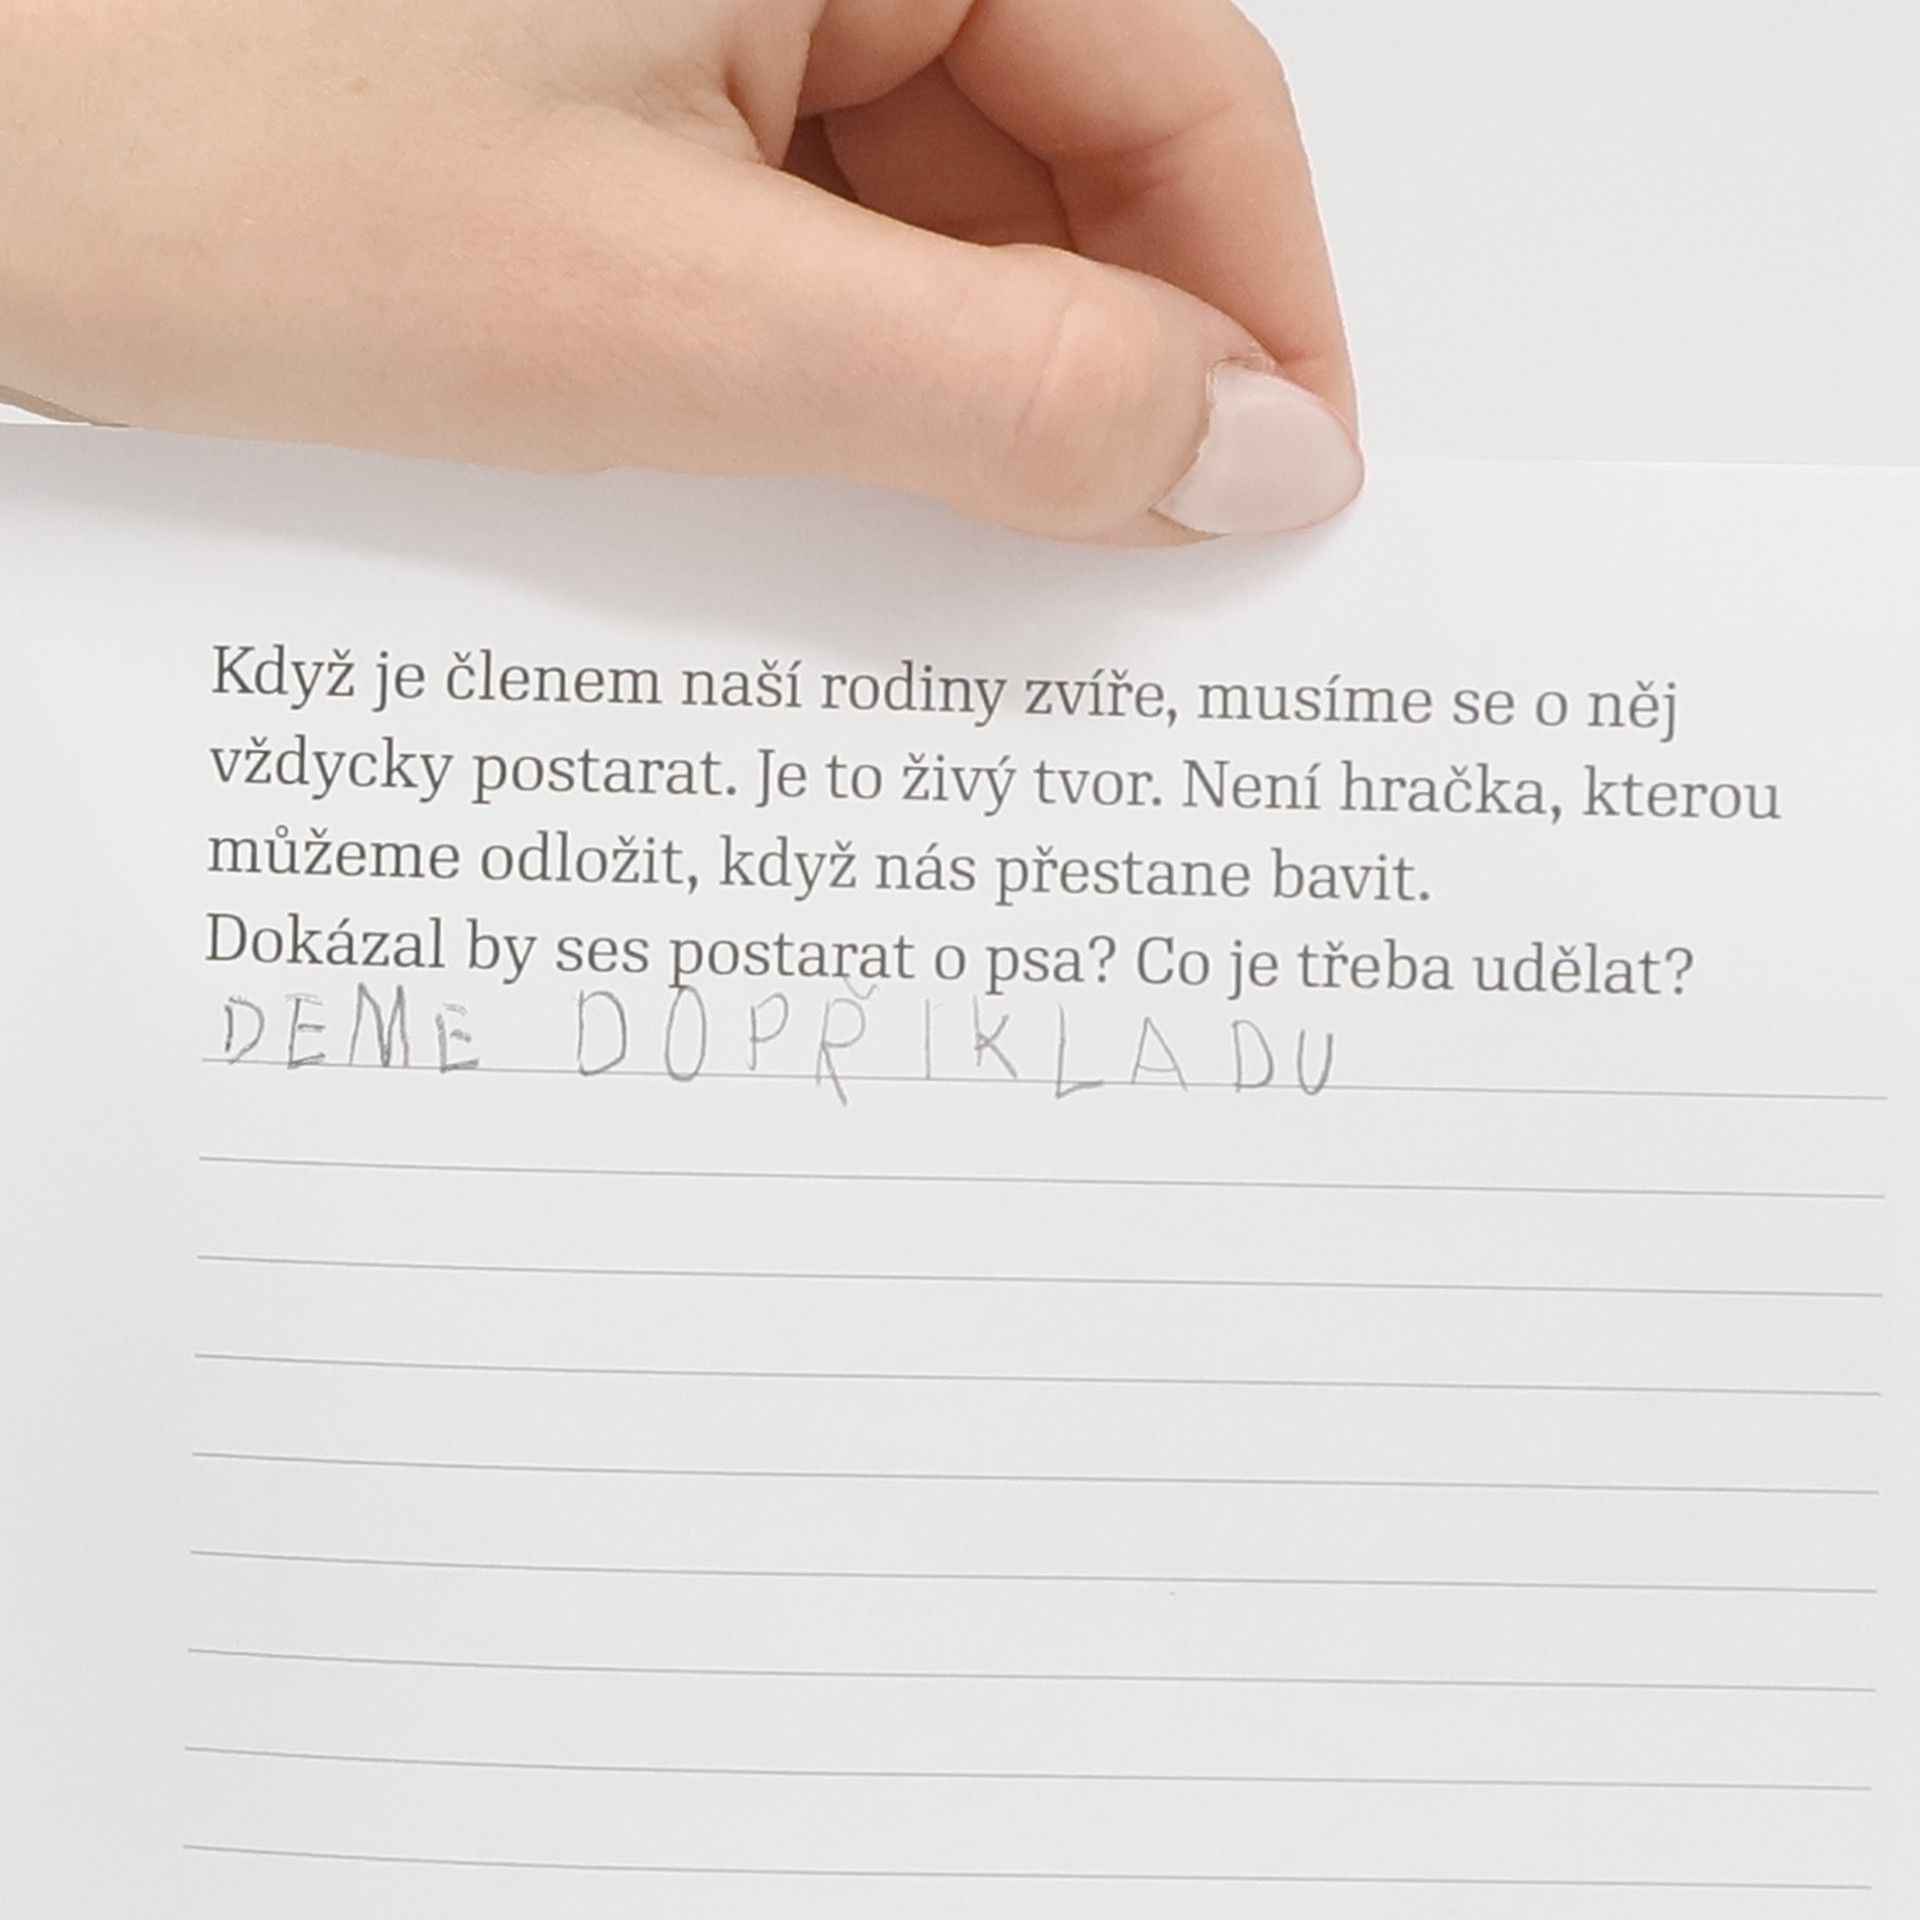 Když je členem naší rodiny zvíře, musíme se o něj
vždycky postarat. Je to živý tvor. Není hračka, kterou
můžeme odložit, když nás přestane bavit.
Dokázal by ses postarat o psa? Co je třeba udělat?
DEME DOPŘIKLADU